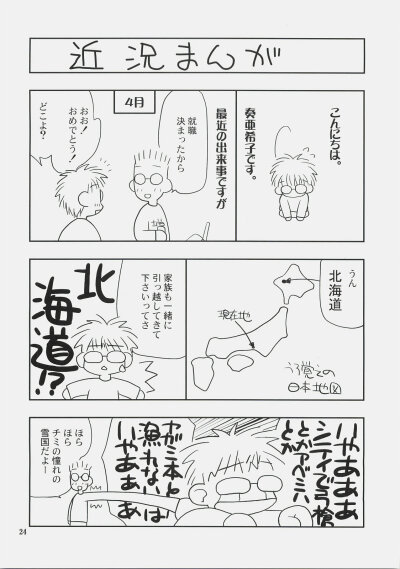 近況まんが
こんにちは。
奏亜希子です。
最近の出来事ですが
4月
就職
決まったから
おお!
おめでとう!
どこよ?
うん
北海道
現在地
うろ覚えの
日本地図
家族も一緒に
引っ越してきて
下さいってさ
北
海道!?
いやあああ
シティで弓槍
とかアベニハ
とか
ヤガミ本も
漁れないは
いやあああ
ほら
ほら
チミの憧れの
雪国だよー
24